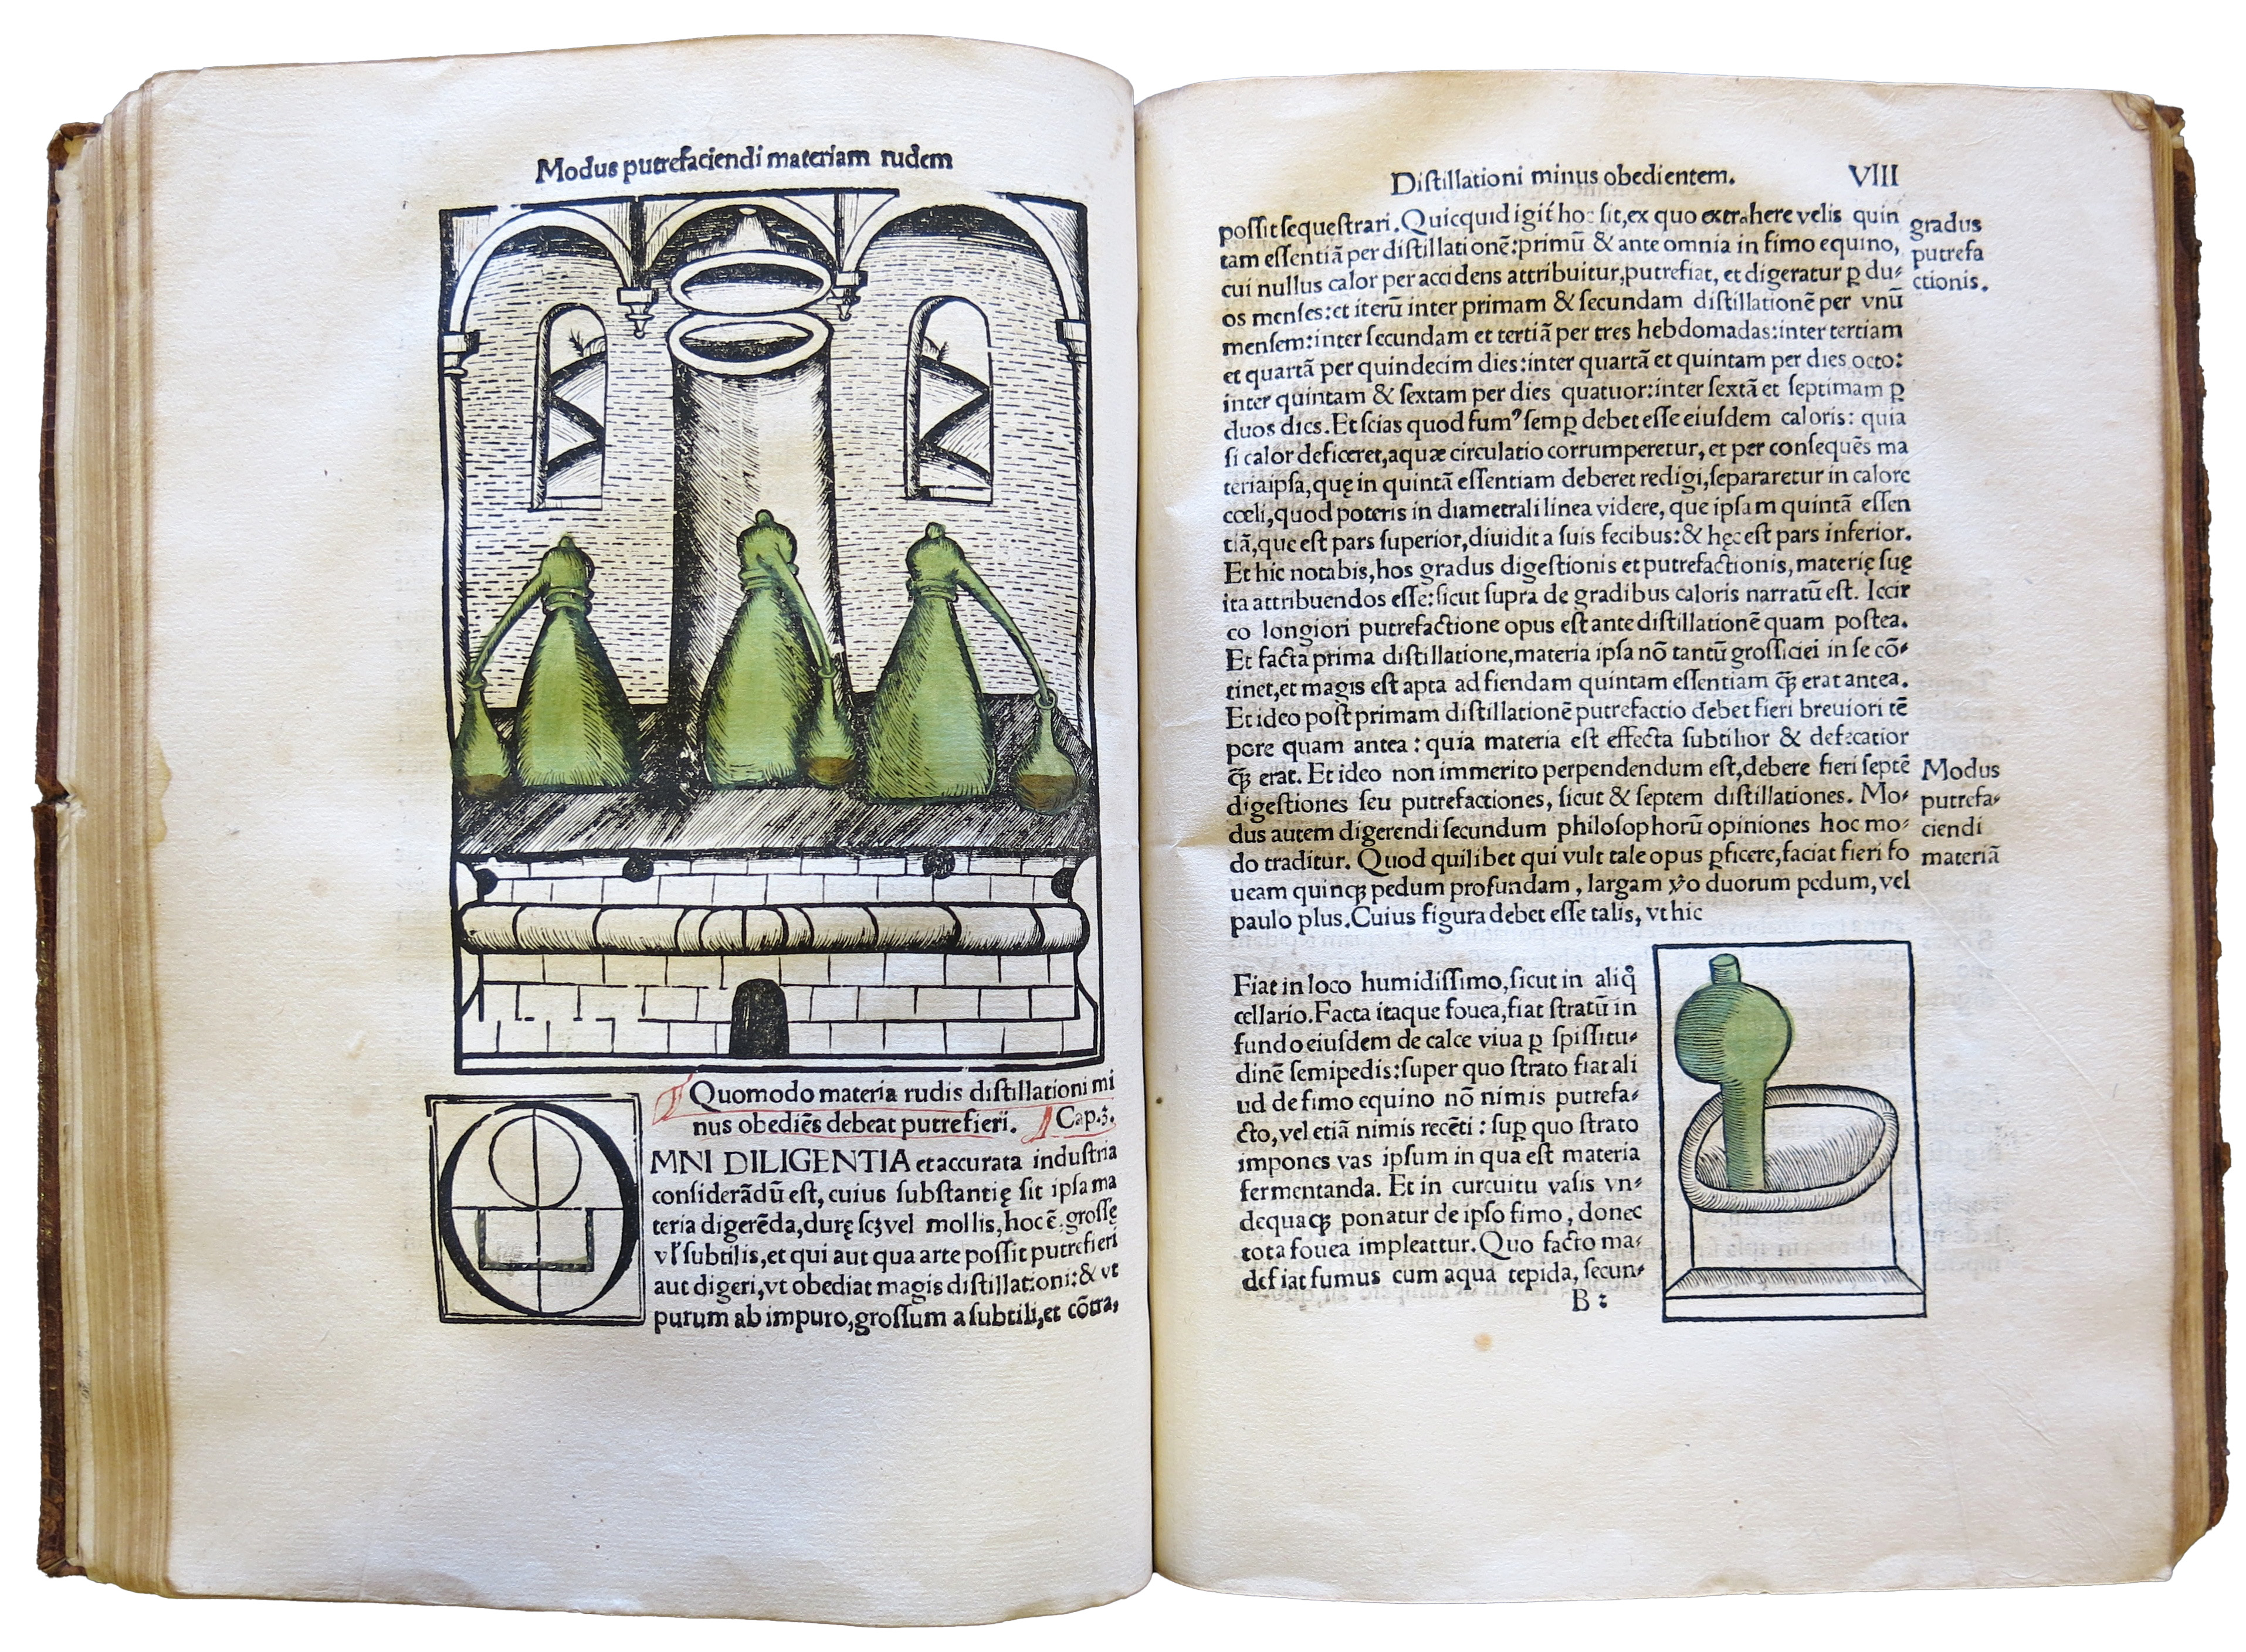 Modus putrefaciendi materiam rudem
¶ Quomodo materia rudis distillationi mi
nus obediēs debeat putrefieri. ¶ Cap.3.
OMNI DILIGENTIA et accurata industria
considerādū est, cuius substantię sit ipsa ma
teria digerēda, durę scꝫ vel mollis, hoc ē. grossę
vľ subtilis, et qui aut qua arte possit putrefieri
aut digeri, vt obediat magis distillationi: & vt
purum ab impuro, grossum a subtili, et cōtra,
Distillationi minus obedientem. VIII
possit sequestrari. Quicquid igiť hoc sit, ex quo extrahere velis quin
tam essentiā per distillationē: primū & ante omnia in fimo equino,
cui nullus calor per accidens attribuitur, putrefiat, et digeratur ꝑ du⸗
os menses: et iterū inter primam & secundam distillationē per vnū
mensem: inter secundam et tertiā per tres hebdomadas: inter tertiam
et quartā per quindecim dies: inter quartā et quintam per dies octo:
inter quintam & sextam per dies quatuor: inter sextā et septimam ꝑ
duos dies. Et scias quod fumꝰ semꝑ debet esse eiusdem caloris: quia
si calor deficeret, aquæ circulatio corrumperetur, et per consequēs ma
teria ipsa, quę in quintā essentiam deberet redigi, separaretur in calore
cœli, quod poteris in diametrali linea videre, que ipsam quintā essen
tiā, que est pars superior, diuidit a suis fecibus: & hęc est pars inferior.
Et hic notabis, hos gradus digestionis et putrefactionis, materię suę
ita attribuendos esse: sicut supra de gradibus caloris narratū est. Iccir
co longiori putrefactione opus est ante distillationē quam postea.
Et facta prima distillatione, materia ipsa nō tantū grossiciei in se cō⸗
tinet, et magis est apta ad fiendam quintam essentiam ꝙ̄ erat antea.
Et ideo post primam distillationē putrefactio debet fieri breuiori tē
pore quam antea: quia materia est effecta subtilior & defecatior
ꝙ̄ erat. Et ideo non immerito perpendendum est, debere fieri septē
digestiones seu putrefactiones, sicut & septem distillationes. Mo⸗
dus autem digerendi secundum philosophorū opiniones hoc mo⸗
do traditur. Quod quilibet qui vult tale opus ꝑficere, faciat fieri fo
ueam quinqꝫ pedum profundam, largam ṽo duorum pedum, vel
paulo plus. Cuius figura debet esse talis, vt hic
gradus
putrefa
ctionis.
Modus
putrefa⸗
ciendi
materiā
Fiat in loco humidissimo, sicut in aliq̊
cellario. Facta itaque fouea, fiat stratū in
fundo eiusdem de calce viua ꝑ spissitu⸗
dinē semipedis: super quo strato fiat ali
ud de fimo equino nō nimis putrefa⸗
cto, vel etiā nimis recēti: suꝑ quo strato
impones vas ipsum in qua est materia
fermentanda. Et in curcuitu vasis vn⸗
dequaqꝫ ponatur de ipso fimo, donec
tota fouea impleattur. Quo facto ma⸗
defiat fumus cum aqua tepida, secun⸗
B 2